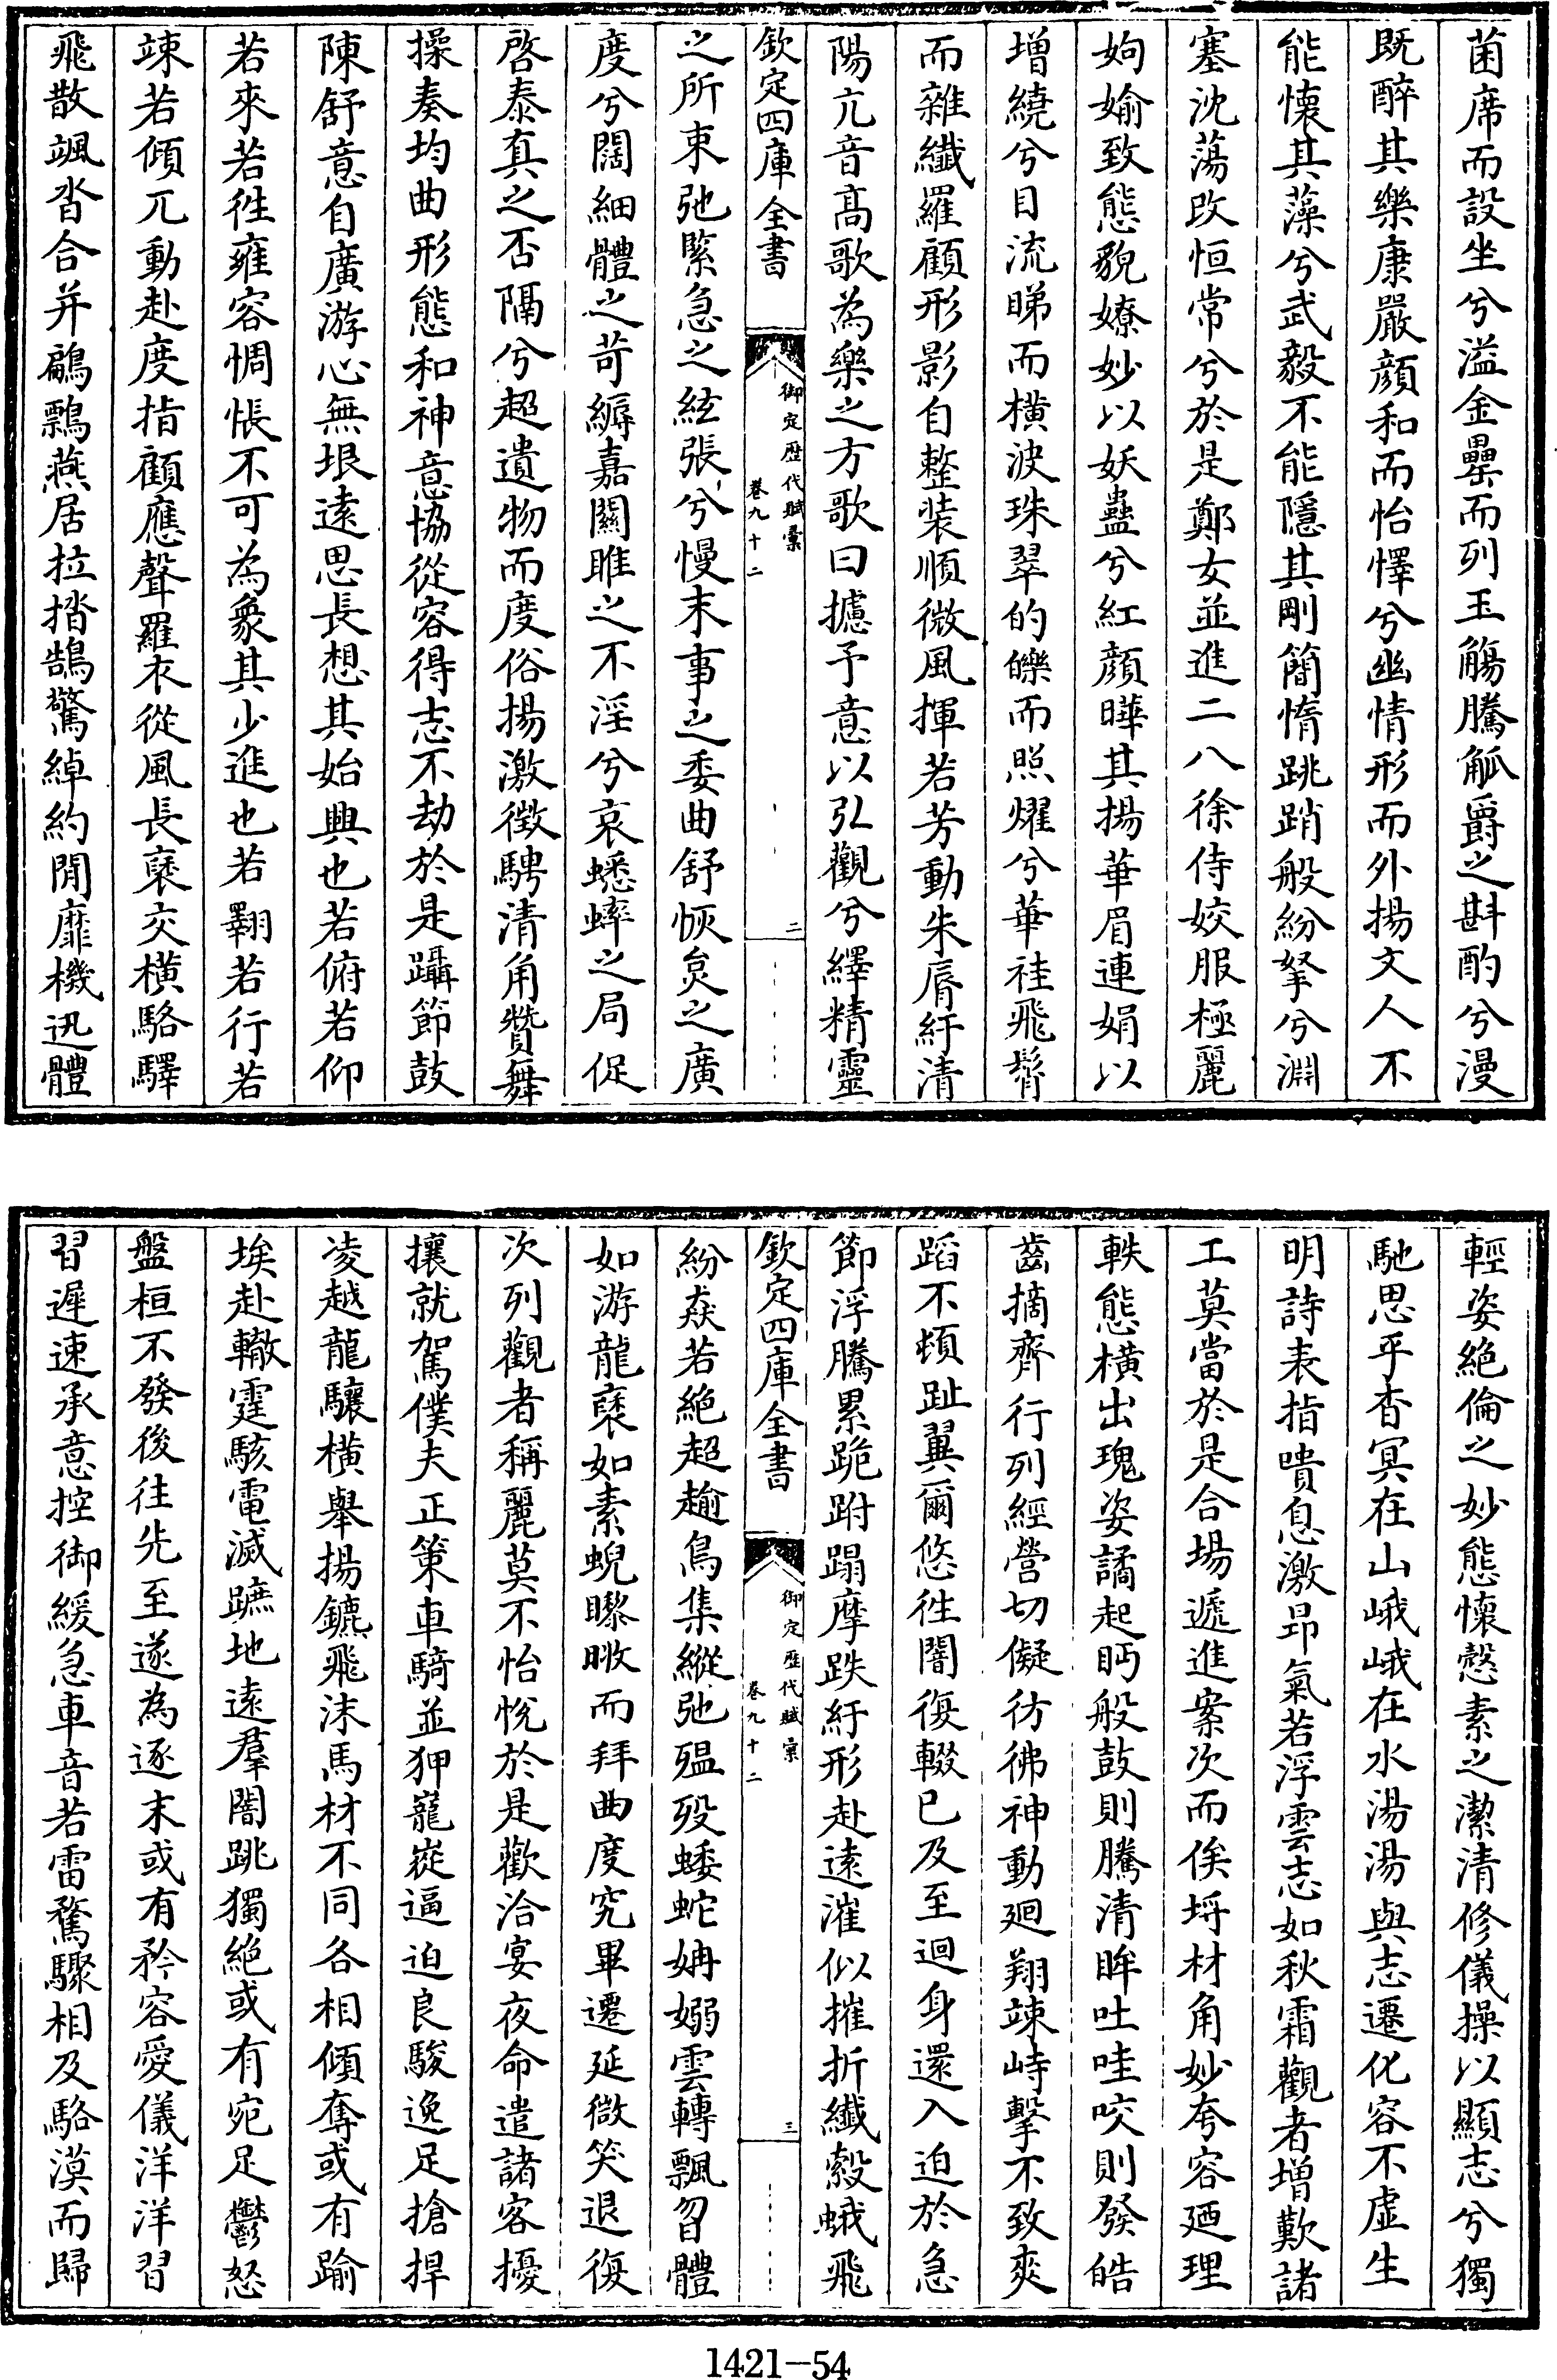 菌席而設坐兮溢金罍而列玉觴騰觚爵之斟酌兮漫
既醉其樂康嚴顔和而怡懌兮幽情形而外揚文人不
能懐其藻兮武毅不能隱其剛簡惰跳踃般紛挐兮淵
塞沈蕩改恒常兮於是鄭女並進二八徐侍姣服極麗
姁媮致態貎嫽妙以妖蠱兮紅顔曄其揚華眉連娟以
增繞兮目流睇而横波珠翠的皪而照燿兮華袿飛髾
而雜纖羅顧形影自整装順微風揮若芳動朱脣紆清
陽亢音髙歌為樂之方歌曰攄予意以弘觀兮繹精靈
欽定四庫全書
御定歴代賦彚
卷九十二
二
之所束弛緊急之絃張兮慢末事之委曲舒恢炱之廣
度兮闊細體之苛縟嘉關雎之不淫兮哀蟋蟀之局促
啓泰真之否隔兮超遺物而度俗揚激徴騁清角贊舞
操奏均曲形態和神意協從容得志不劫於是躡節鼓
陳舒意自廣游心無垠逺思長想其始興也若俯若仰
若來若徃雍容惆悵不可為象其少進也若翺若行若
竦若傾兀動赴度指顧應聲羅衣從風長褏交横駱驛
飛散颯沓合并鶣䴉燕居拉㧺鵠驚綽約閒靡機迅體
輕姿絶倫之妙態懐慤素之潔清修儀操以顯志兮獨
馳思乎杳冥在山峨峨在水湯湯與志遷化容不虚生
明詩表指嘳息激昻氣若浮雲志如秋霜觀者增歎諸
工莫當於是合場遞進案次而俟埓材角妙夸容廼理
軼態横出瑰姿譎起眄般鼓則騰清眸吐哇咬則發皓
齒摘齊行列經營切儗彷彿神動廻翔竦峙擊不致筴
蹈不頓趾翼爾悠徃闇復輟已及至迴身還入迫於急
節浮騰累跪跗蹋摩跌紆形赴逺漼似摧折纎縠蛾飛
欽定四庫全書
御定歴代賦彚
卷九十二
三
紛猋若絶超趫鳥集縱弛殟歿蜲蛇姌嫋雲轉飄曶體
如游龍褏如素蜺瞭𥇒而拜曲度究畢遷延微笑退復
次列觀者稱麗莫不怡恱於是歡洽宴夜命遣諸客擾
攘就駕僕夫正策車騎並狎巃嵸逼迫良駿逸足搶捍
凌越龍驤横舉揚鑣飛沫馬材不同各相傾奪或有踰
埃赴轍霆駭電滅蹠地逺羣闇跳獨絶或有宛足鬱怒
盤桓不發後往先至遂為逐末或有矜容愛儀洋洋習
習遲速承意控御緩急車音若雷騖驟相及駱漠而歸
1421-54